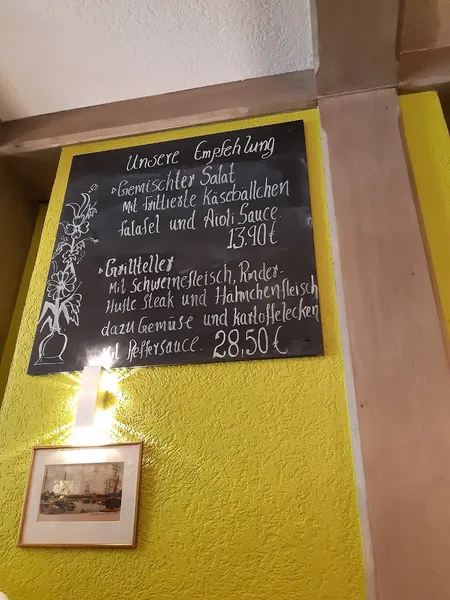 Unsere Empfehlung
▹Gemischter Salat
Mit frittierte Käsebällchen
falafel und Aioli Sauce.
13.90€
▹Grillteller
Mit Schweinefleisch, Rinder-
Hüfte Steak und Hähnchenfleisch
dazu Gemüse und kartoffelecken
Pfeffersauce. 28,50€